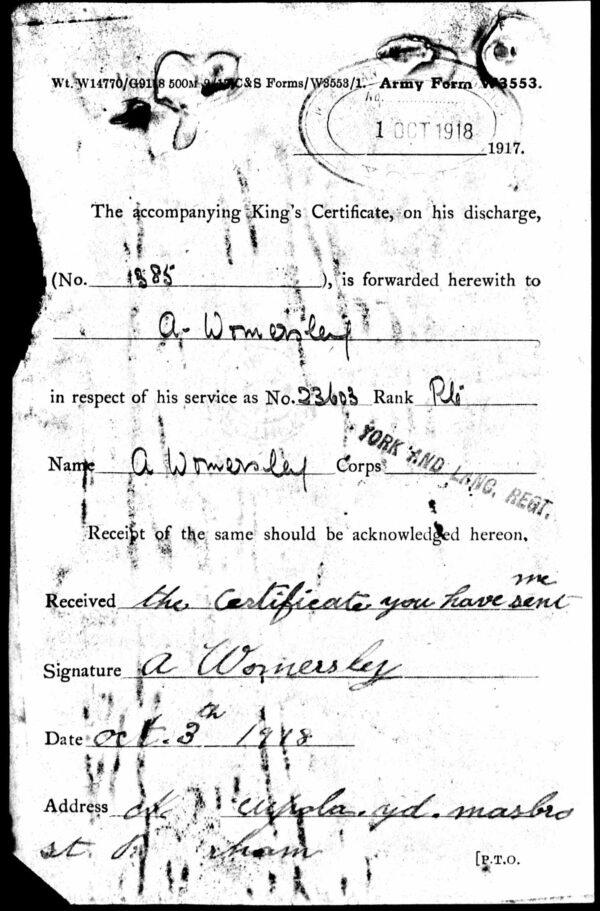 Wt. W14770/G9118 500M 9/17 C&S Forms/W3553/1. Army Form W3553.
1 OCT 1918
1917.
The accompanying King's Certificate, on his discharge,
(No. 1385), is forwarded herewith to
A. Womersley
in respect of his service as No. 23603 Rank Pte
Name A Womersley Corps YORK AND LANC. REGT.
Receipt of the same should be acknowledged hereon.
me
Received the Certificate you have sent
Signature A Womersley
Date Oct. 3th 1918
Address cupola. yd. masbro
st.
[P.T.O.